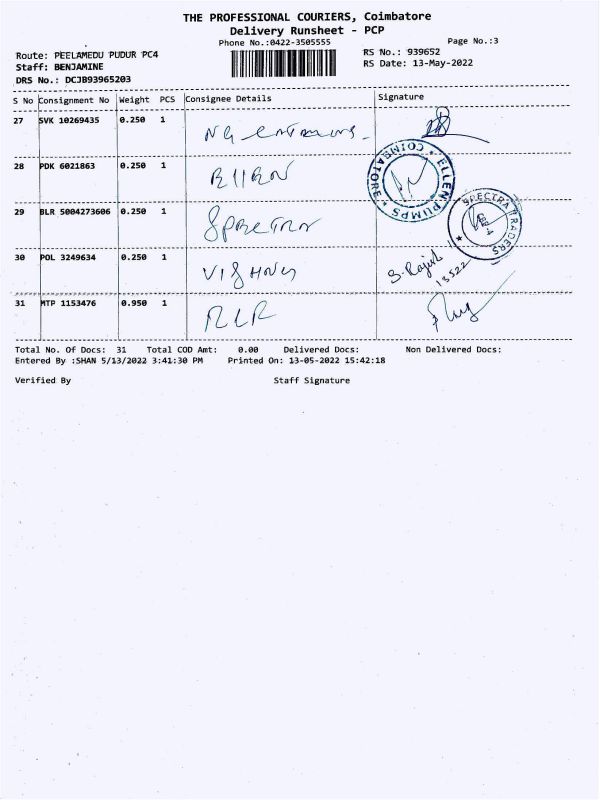 THE PROFESSIONAL COURIERS, Coimbatore
Delivery Runsheet - PCP
Phone No.:0422-3505555
Page No.:3
Route: PEELAMEDU PUDUR PC4
RS No.: 939652
Staff: BENJAMINE
RS Date: 13-May-2022
DRS No.: DCJB93965203
S No Consignment No Weight PCS Consignee Details Signature
27 SVK 10269435 0.250 1
28 PDK 6021863 0.250 1
COIMBATORE * ELLEN PUMPS *
29 BLR 5004273606 0.250 1
SPECTRA TRADERS *
30 POL 3249634 0.250 1 S. Rajesh
13522
31 MTP 1153476 0.950 1 RLR
Total No. Of Docs: 31 Total COD Amt: 0.00 Delivered Docs: Non Delivered Docs:
Entered By :SHAN 5/13/2022 3:41:30 PM Printed On: 13-05-2022 15:42:18
Verified By Staff Signature